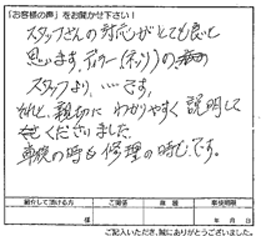 「お客様の声」をお聞かせ下さい！
スタッフさんの対応がとても良いと
思います。ディラー(ネッツ)の、
スタッフより、‥‥です。
それと、親切に わかりやすく 説明して
くださいました。
車検の時も 修理の時も、です。
紹介して頂ける方 ご関係 車種 車検期限
様 年 月 日
ご記入いただき、誠にありがとうございました。